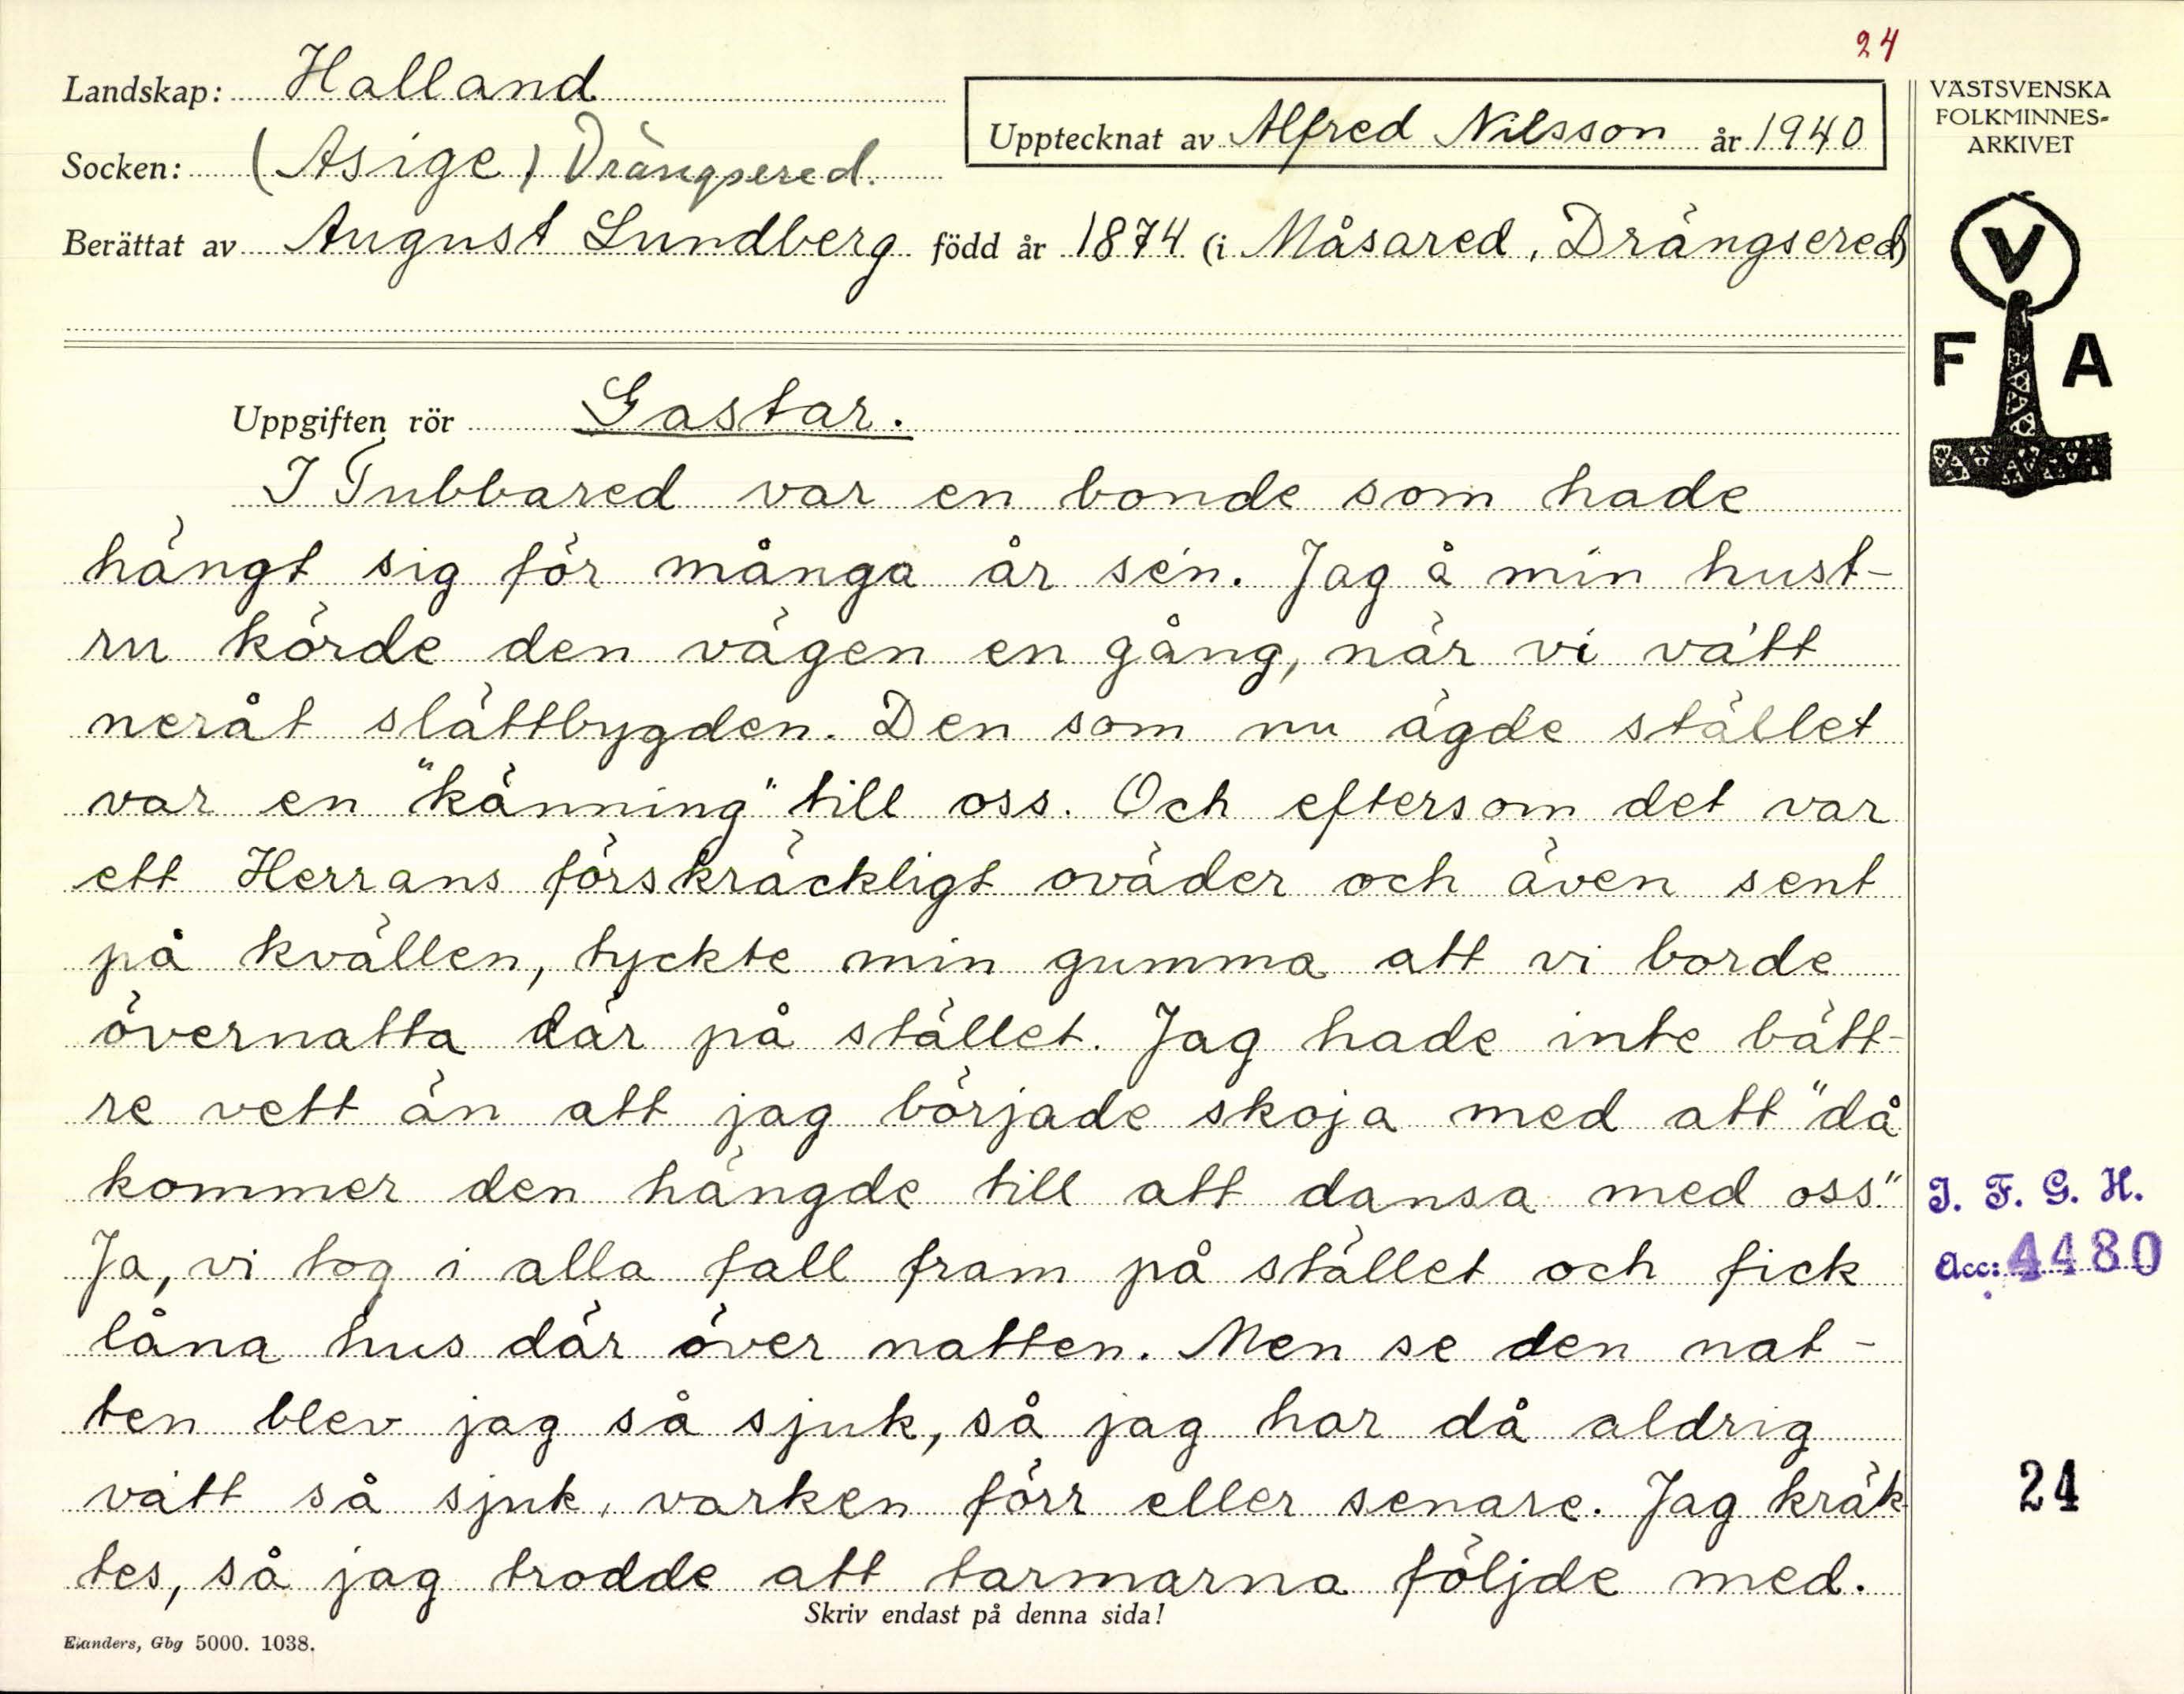 24
Landskap: Halland
Socken: (Asige) Drängsered.
Upptecknat av Alfred Nilsson år 1940
Berättat av August Lundberg född år 1874 (i Måsared, Drängsered)
Uppgiften rör Gastar.
I Gubbared var en bonde som hade
hängt sig för många år sén. Jag å min hust-
ru körde den vägen en gång, när vi vátt
neråt slättbygden. Den som nu ägde stället
var en "känning" till oss. Och eftersom det var
ett Herrans förskräckligt oväder och även sent
på kvällen, tyckte min gumma att vi borde
övernatta där på stället. Jag hade inte bätt-
re vett än att jag började skoja med att "då
kommer den hängde till att dansa med oss."
Ja, vi tog i alla fall fram på stället och fick
låna hus där över natten. Men se den nat-
ten blev jag så sjuk, så jag har då aldrig
vátt så sjuk, varken förr eller senare. Jag kräk
tes, så jag trodde att tarmarna följde med.
Skriv endast på denna sida!
Elanders, Gbg 5000. 1038.
VÄSTSVENSKA
FOLKMINNES-
ARKIVET
V
F A
I. F. G. H.
Acc: 4480
24